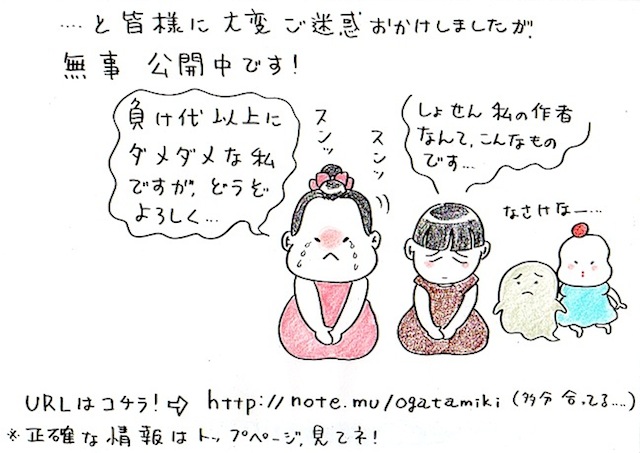 …と皆様に大変ご迷惑おかけしましたが、
無事 公開中です!
負け代以上に
ダメダメな私
ですが、どうぞ
よろしく…
スンッ
スンッ
しょせん私の作者
なんて、こんなもの
です…
なさけなー…
URLはコチラ!⇨ http://note.mu/ogatamiki (多分合ってる…)
※正確な情報はトップページ、見てネ!